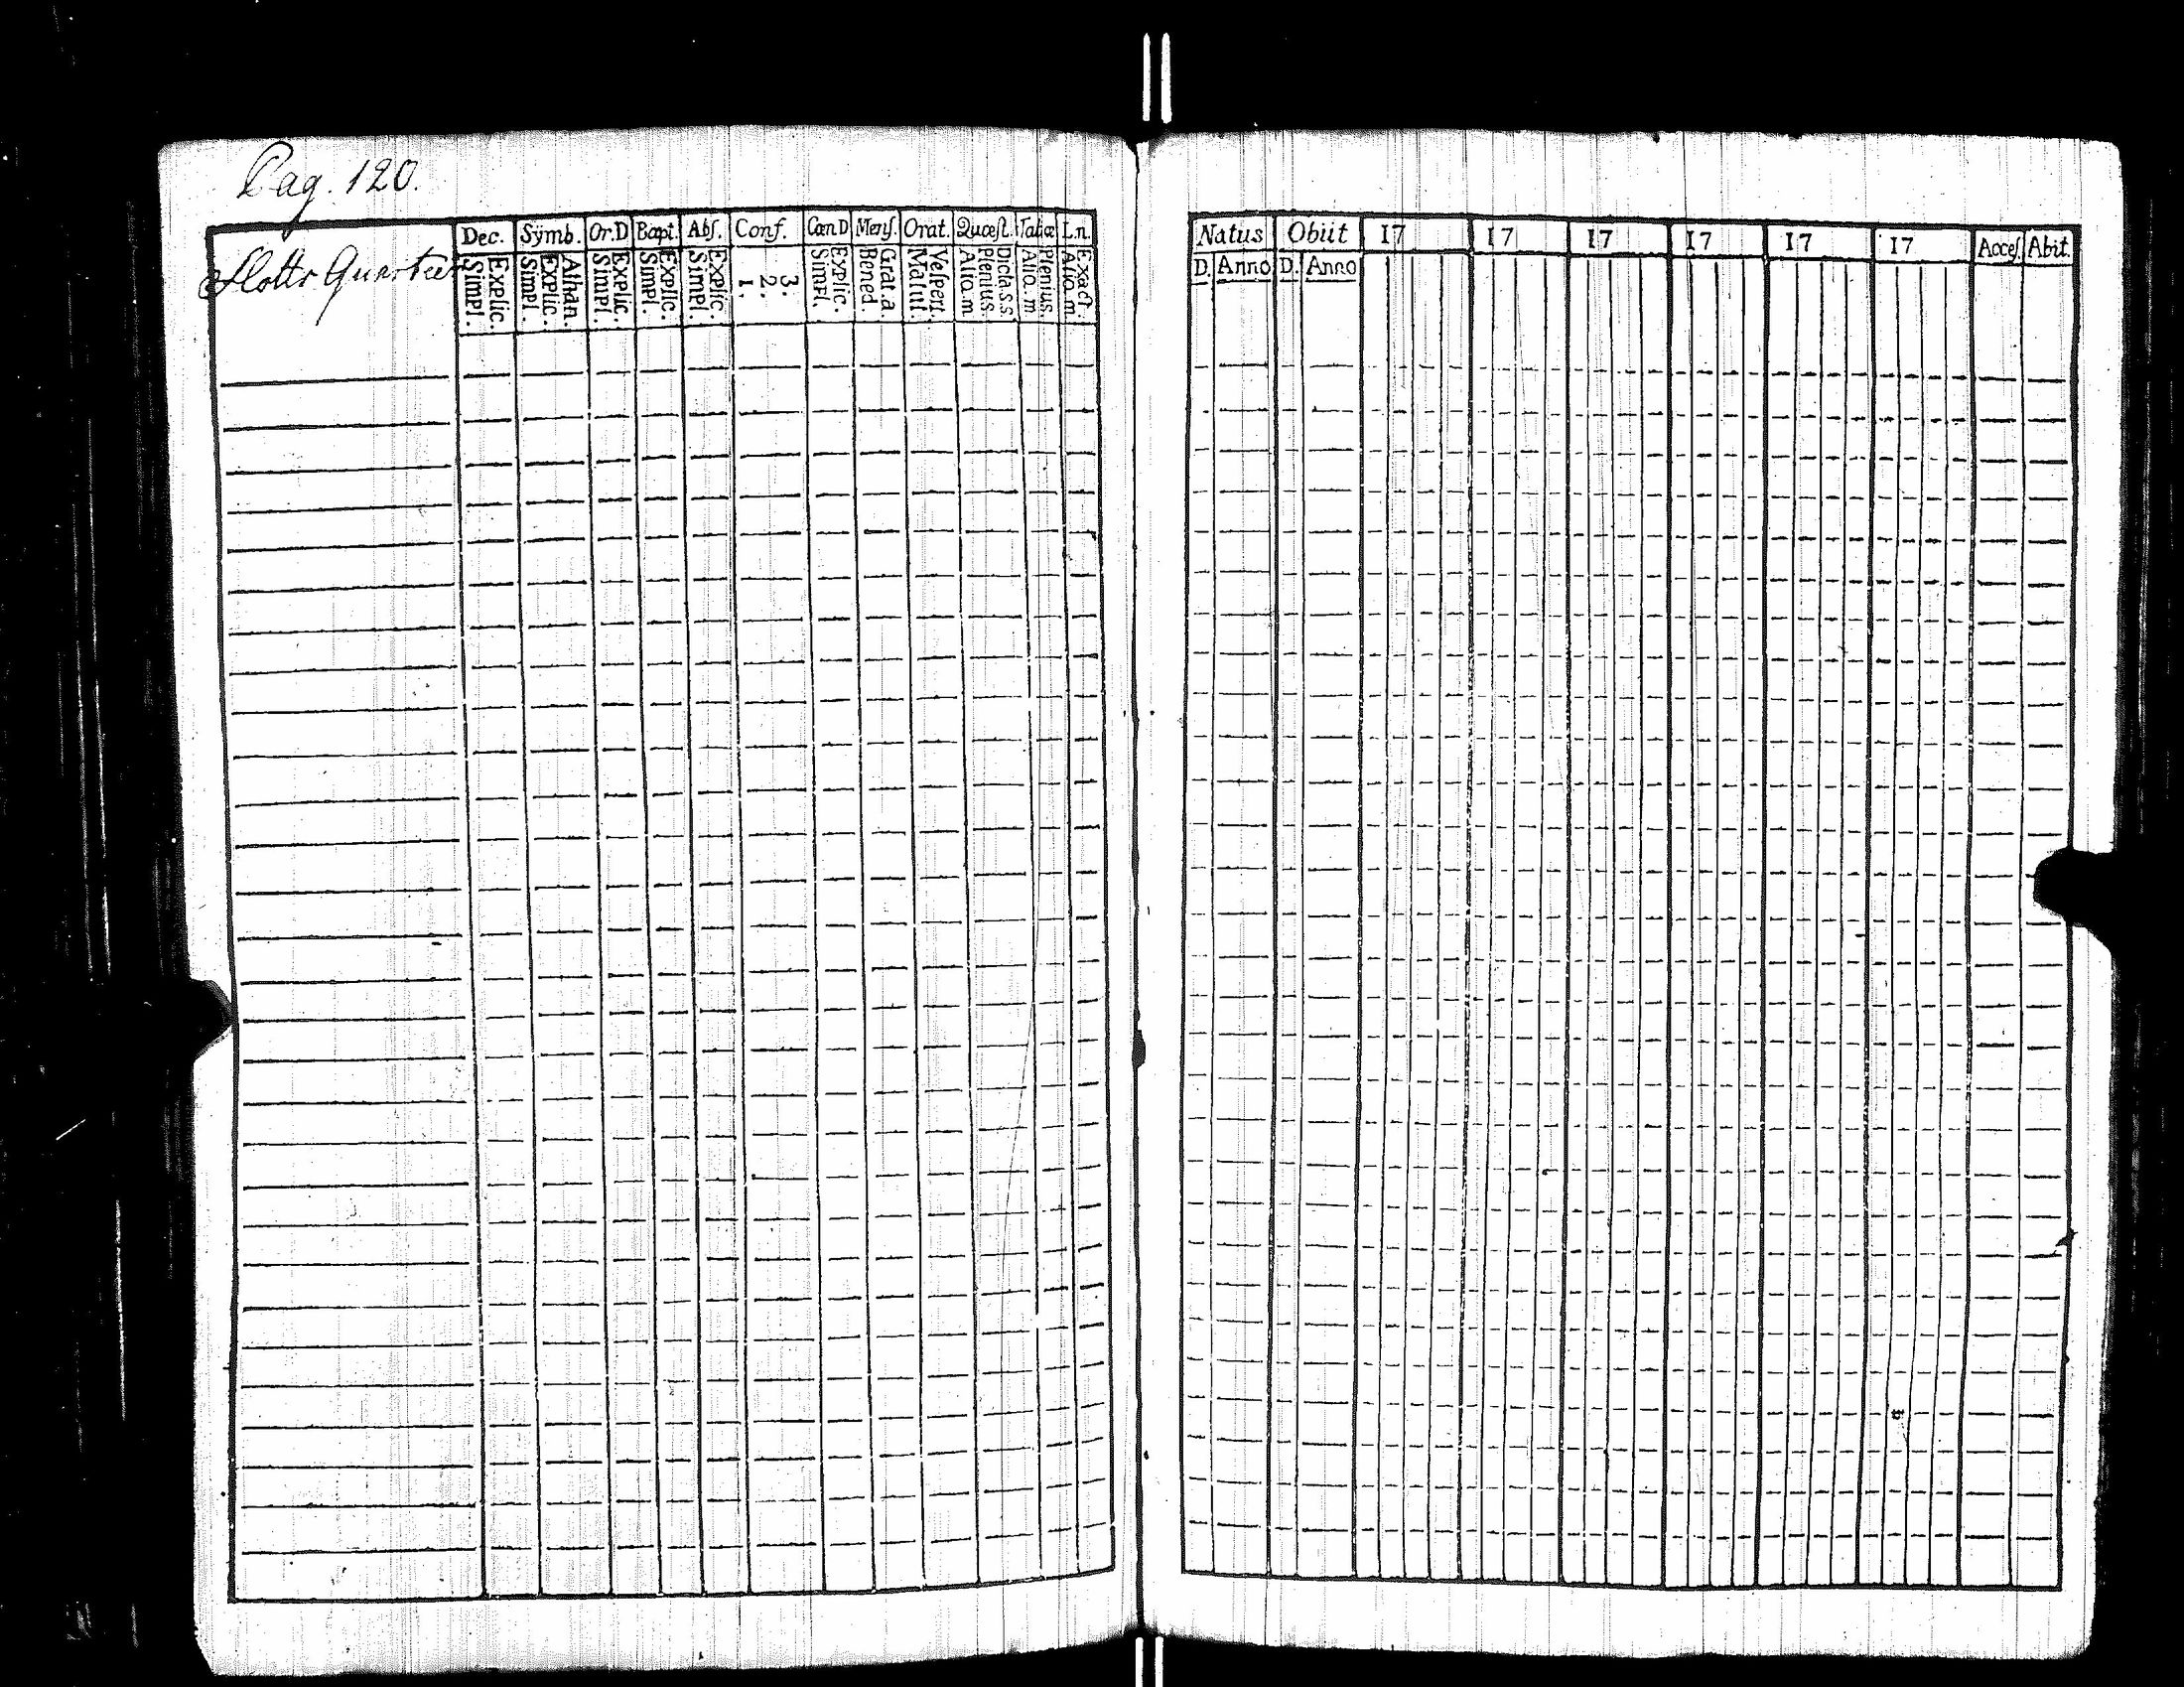 Pag. 120.
Slotts Quarteer
Dec. Sÿmb. Or.D Bapt. Abſ. Conf. CœnD Menſ. Orat. Quæſt. Tabæ L.n.
Simpl. Explic. Simpl. Explic. Athan. Simpl. Explic. Simpl. Explic. Simpl. Explic. 1. 2. 3. Simpl. Explic. Bened. Grat.a Matut. Veſpert. Aliq.m Plenius. Dicta.s.s. Aliq.m Plenius. Aliq.m Exact.
Natus Obiit 17 17 17 17 17 17 Acceſ. Abit.
D. Anno D. Anno